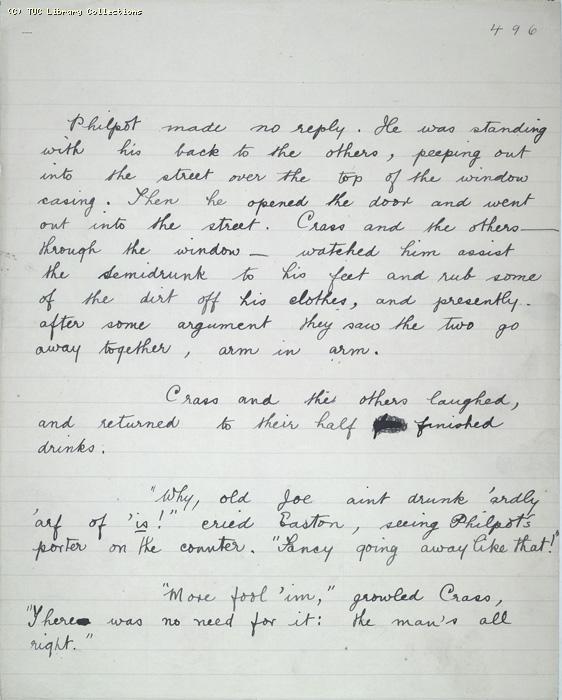 (C) TUC Library Collections
496
Philpot made no reply. He was standing
with his back to the others, peeping out
into the street over the top of the window
casing. Then he opened the door and went
out into the street. Crass and the others—
through the window — watched him assist
the semidrunk to his feet and rub some
of the dirt off his clothes, and presently.
after some argument they saw the two go
away together, arm in arm.
Crass and the others laughed,
and returned to their half finished
drinks.
"Why, old Joe aint drunk 'ardly
'arf of 'is!" cried Easton, seeing Philpot's
porter on the counter. "Fancy going away like that!"
"More fool 'im," growled Crass,
"There was no need for it: the man's all
right."